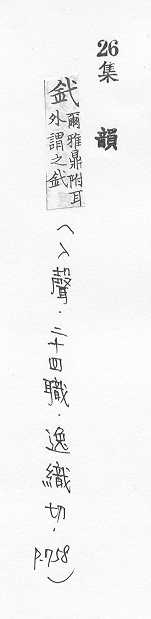 26集 韻
釴爾雅鼎附耳外謂之釴
(入聲．二十四職．逸織切．p.758)